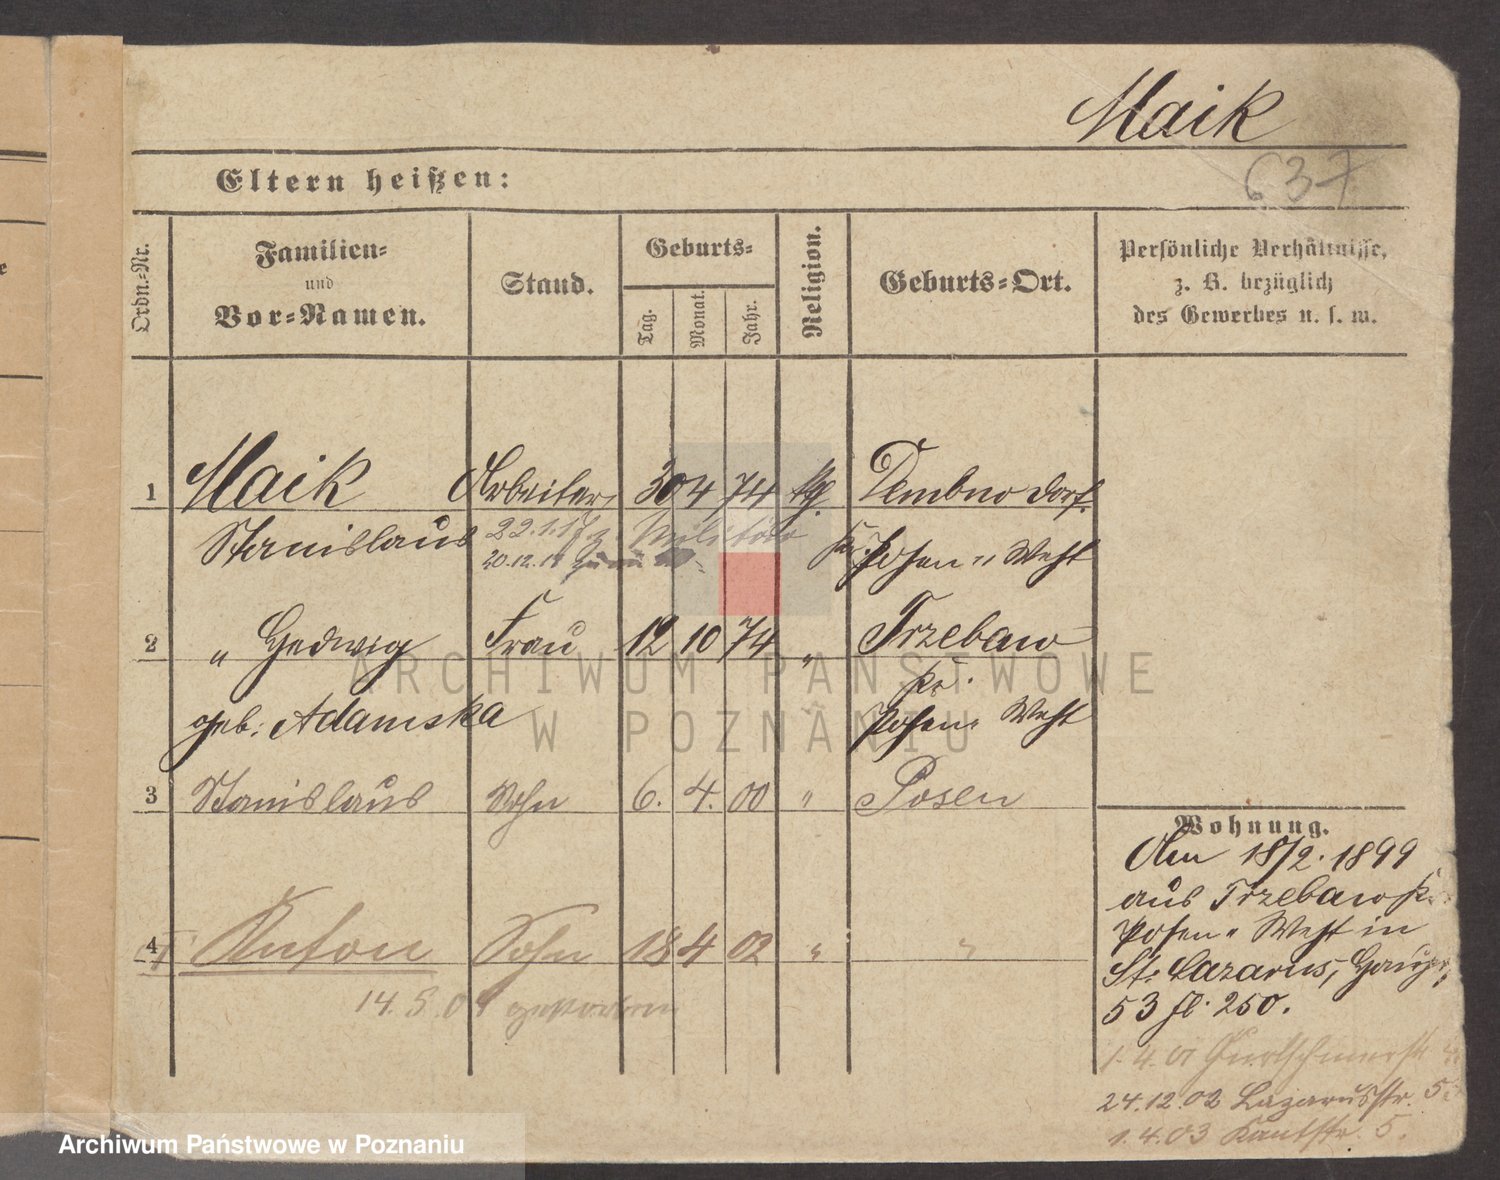 Maik
637
Eltern heißen:
Ordn.-Nr.
Familien-
und
Vor-Namen.
Stand.
Geburts-
Tag.
Monat.
Jahr.
Religion.
Geburts-Ort.
Persönliche Verhältnisse,
z. B. bezüglich
des Gewerbes u. s. w.
1 Maik Arbeiter 30 4 74 ktl. Dembno Dorf.
Stanislaus 22.1.17 z. Militär Kr. Posen-West
20.12.18 zurück
2 " Hedwig Frau 12 10 74 " Trzebaw
Kr.
geb. Adamska Posen West
3 Stanislaus Sohn 6. 4. 00 " Posen
4 Anton Sohn 18 4 02 " "
14.5.04 gestorben
Wohnung.
Am 18/2. 1899
aus Trzebaw Kr.
Posen-West in
St. Lazarus,
53 fl. 250.
1.4.01
24.12.02 Lazarusstr. 5
1.4.03 Kantstr. 5.
ARCHIWUM PAŃSTWOWE
W POZNANIU
Archiwum Państwowe w Poznaniu